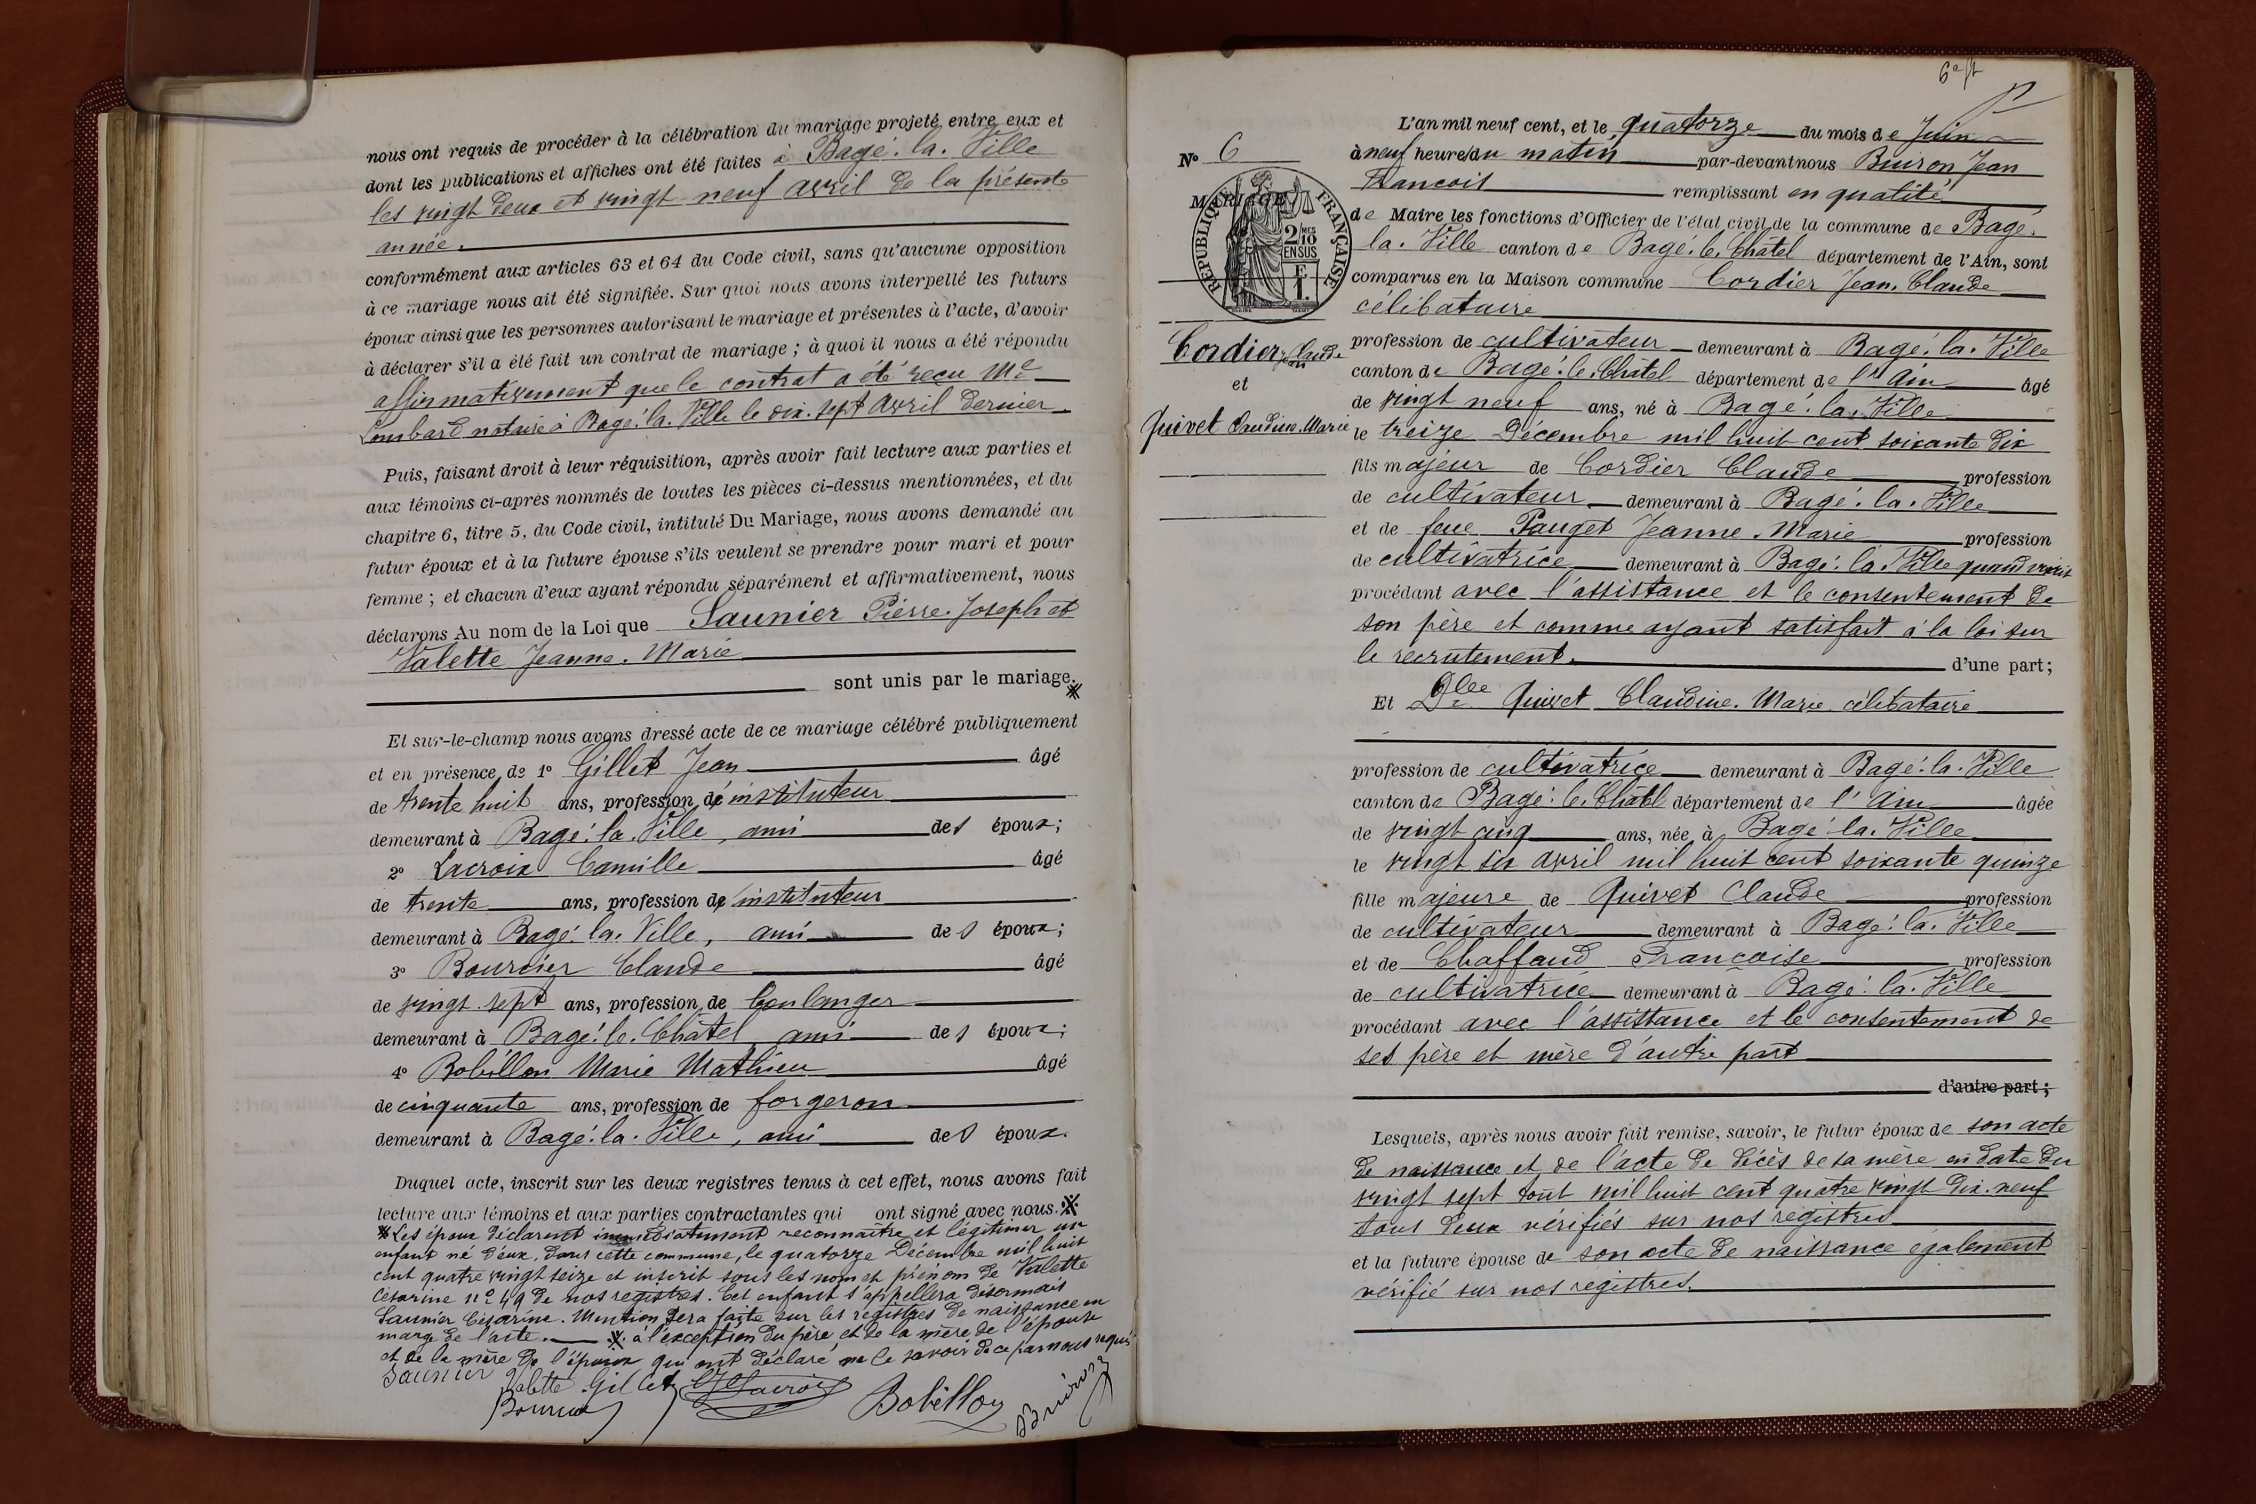 nous ont requis de procéder à la célébration du mariage projeté entre eux et
dont les publications et affiches ont été faites à Bagé-la-Ville
les vingt deux et vingt-neuf avril de la présente
année.
conformément aux articles 63 et 64 du Code civil, sans qu'aucune opposition
à ce mariage nous ait été signifiée. Sur quoi nous avons interpellé les futurs
époux ainsi que les personnes autorisant le mariage et présentes à l'acte, d'avoir
à déclarer s'il a été fait un contrat de mariage ; à quoi il nous a été répondu
affirmativement que le contrat a été reçu Me
Lombard notaire à Bagé-la-Ville le dix-sept Avril dernier
Puis, faisant droit à leur réquisition, après avoir fait lecture aux parties et
aux témoins ci-après nommés de toutes les pièces ci-dessus mentionnées, et du
chapitre 6, titre 5, du Code civil, intitulé Du Mariage, nous avons demandé au
futur époux et à la future épouse s'ils veulent se prendre pour mari et pour
femme ; et chacun d'eux ayant répondu séparément et affirmativement, nous
déclarons Au nom de la Loi que Saunier Pierre-Joseph et
Valette Jeanne-Marie
sont unis par le mariage.
Et sur-le-champ nous avons dressé acte de ce mariage célébré publiquement
et en présence de 1° Gillet Jean âgé
de trente huit ans, profession d'instituteur
demeurant à Bagé-la-Ville, ami des époux ;
2° Lacroix Camille âgé
de trente ans, profession d'instituteur
demeurant à Bagé-la-Ville, ami des époux ;
3° Bourcier Claude âgé
de vingt-sept ans, profession de boulanger
demeurant à Bagé-le-Châtel ami des époux ;
4° Bobillon Marie Mathieu âgé
de cinquante ans, profession de forgeron
demeurant à Bagé-la-Ville, ami des époux.
Duquel acte, inscrit sur les deux registres tenus à cet effet, nous avons fait
lecture aux témoins et aux parties contractantes qui ont signé avec nous.
Les époux déclarent immédiatement reconnaître et légitimer un
enfant né d'eux, dans cette commune, le quatorze Décembre mil huit
cent quatre vingt seize et inscrit sous les nom et prénom de Valette
Césarine n° 49 de nos registres. Cet enfant s'appellera désormais
Saunier Césarine. Mention sera faite sur les registres de naissance en
marge de l'acte. à l'exception du père et de la mère de l'épouse
et de la mère de l'époux qui ont déclaré ne le savoir de ce par nous requis
Saunier Valette Gillet Lacroix
Bourcier Bobillon Buiron
6e
N° 6
MARIAGE
RÉPUBLIQUE FRANÇAISE
2 MES
10
EN SUS
F
1
Cordier Jean Claude
et
Quivet Claudine-Marie
L'an mil neuf cent, et le quatorze du mois de Juin
à neuf heures du matin par-devant nous Buiron, Jean
François remplissant en qualité
de Maire les fonctions d'Officier de l'état civil de la commune de Bagé-
la-Ville canton de Bagé-le-Châtel département de l'Ain, sont
comparus en la Maison commune Cordier Jean-Claude
célibataire
profession de cultivateur demeurant à Bagé-la-Ville
canton de Bagé-le-Châtel département de l'Ain âgé
de vingt neuf ans, né à Bagé-la-Ville
le treize Décembre mil huit cent soixante dix
fils majeur de Cordier Claude profession
de cultivateur demeurant à Bagé-la-Ville
et de feue Pauget Jeanne-Marie profession
de cultivatrice demeurant à Bagé-la-Ville quand vivait
procédant avec l'assistance et le consentement de
son père et comme ayant satisfait à la loi sur
le recrutement. d'une part ;
Et Dlle Quivet Claudine-Marie célibataire
profession de cultivatrice demeurant à Bagé-la-Ville
canton de Bagé-le-Châtel département de l'Ain âgée
de vingt cinq ans, née à Bagé-la-Ville
le vingt six avril mil huit cent soixante quinze
fille majeure de Quivet Claude profession
de cultivateur demeurant à Bagé-la-Ville
et de Chaffaud Françoise profession
de cultivatrice demeurant à Bagé-la-Ville
procédant avec l'assistance et le consentement de
ses père et mère d'autre part
d'autre part ;
Lesquels, après nous avoir fait remise, savoir, le futur époux de son acte
de naissance et de l'acte de décès de sa mère en date du
vingt sept août mil huit cent quatre vingt dix-neuf
tous deux vérifiés sur nos registres
et la future épouse de son acte de naissance également
vérifié sur nos registres.